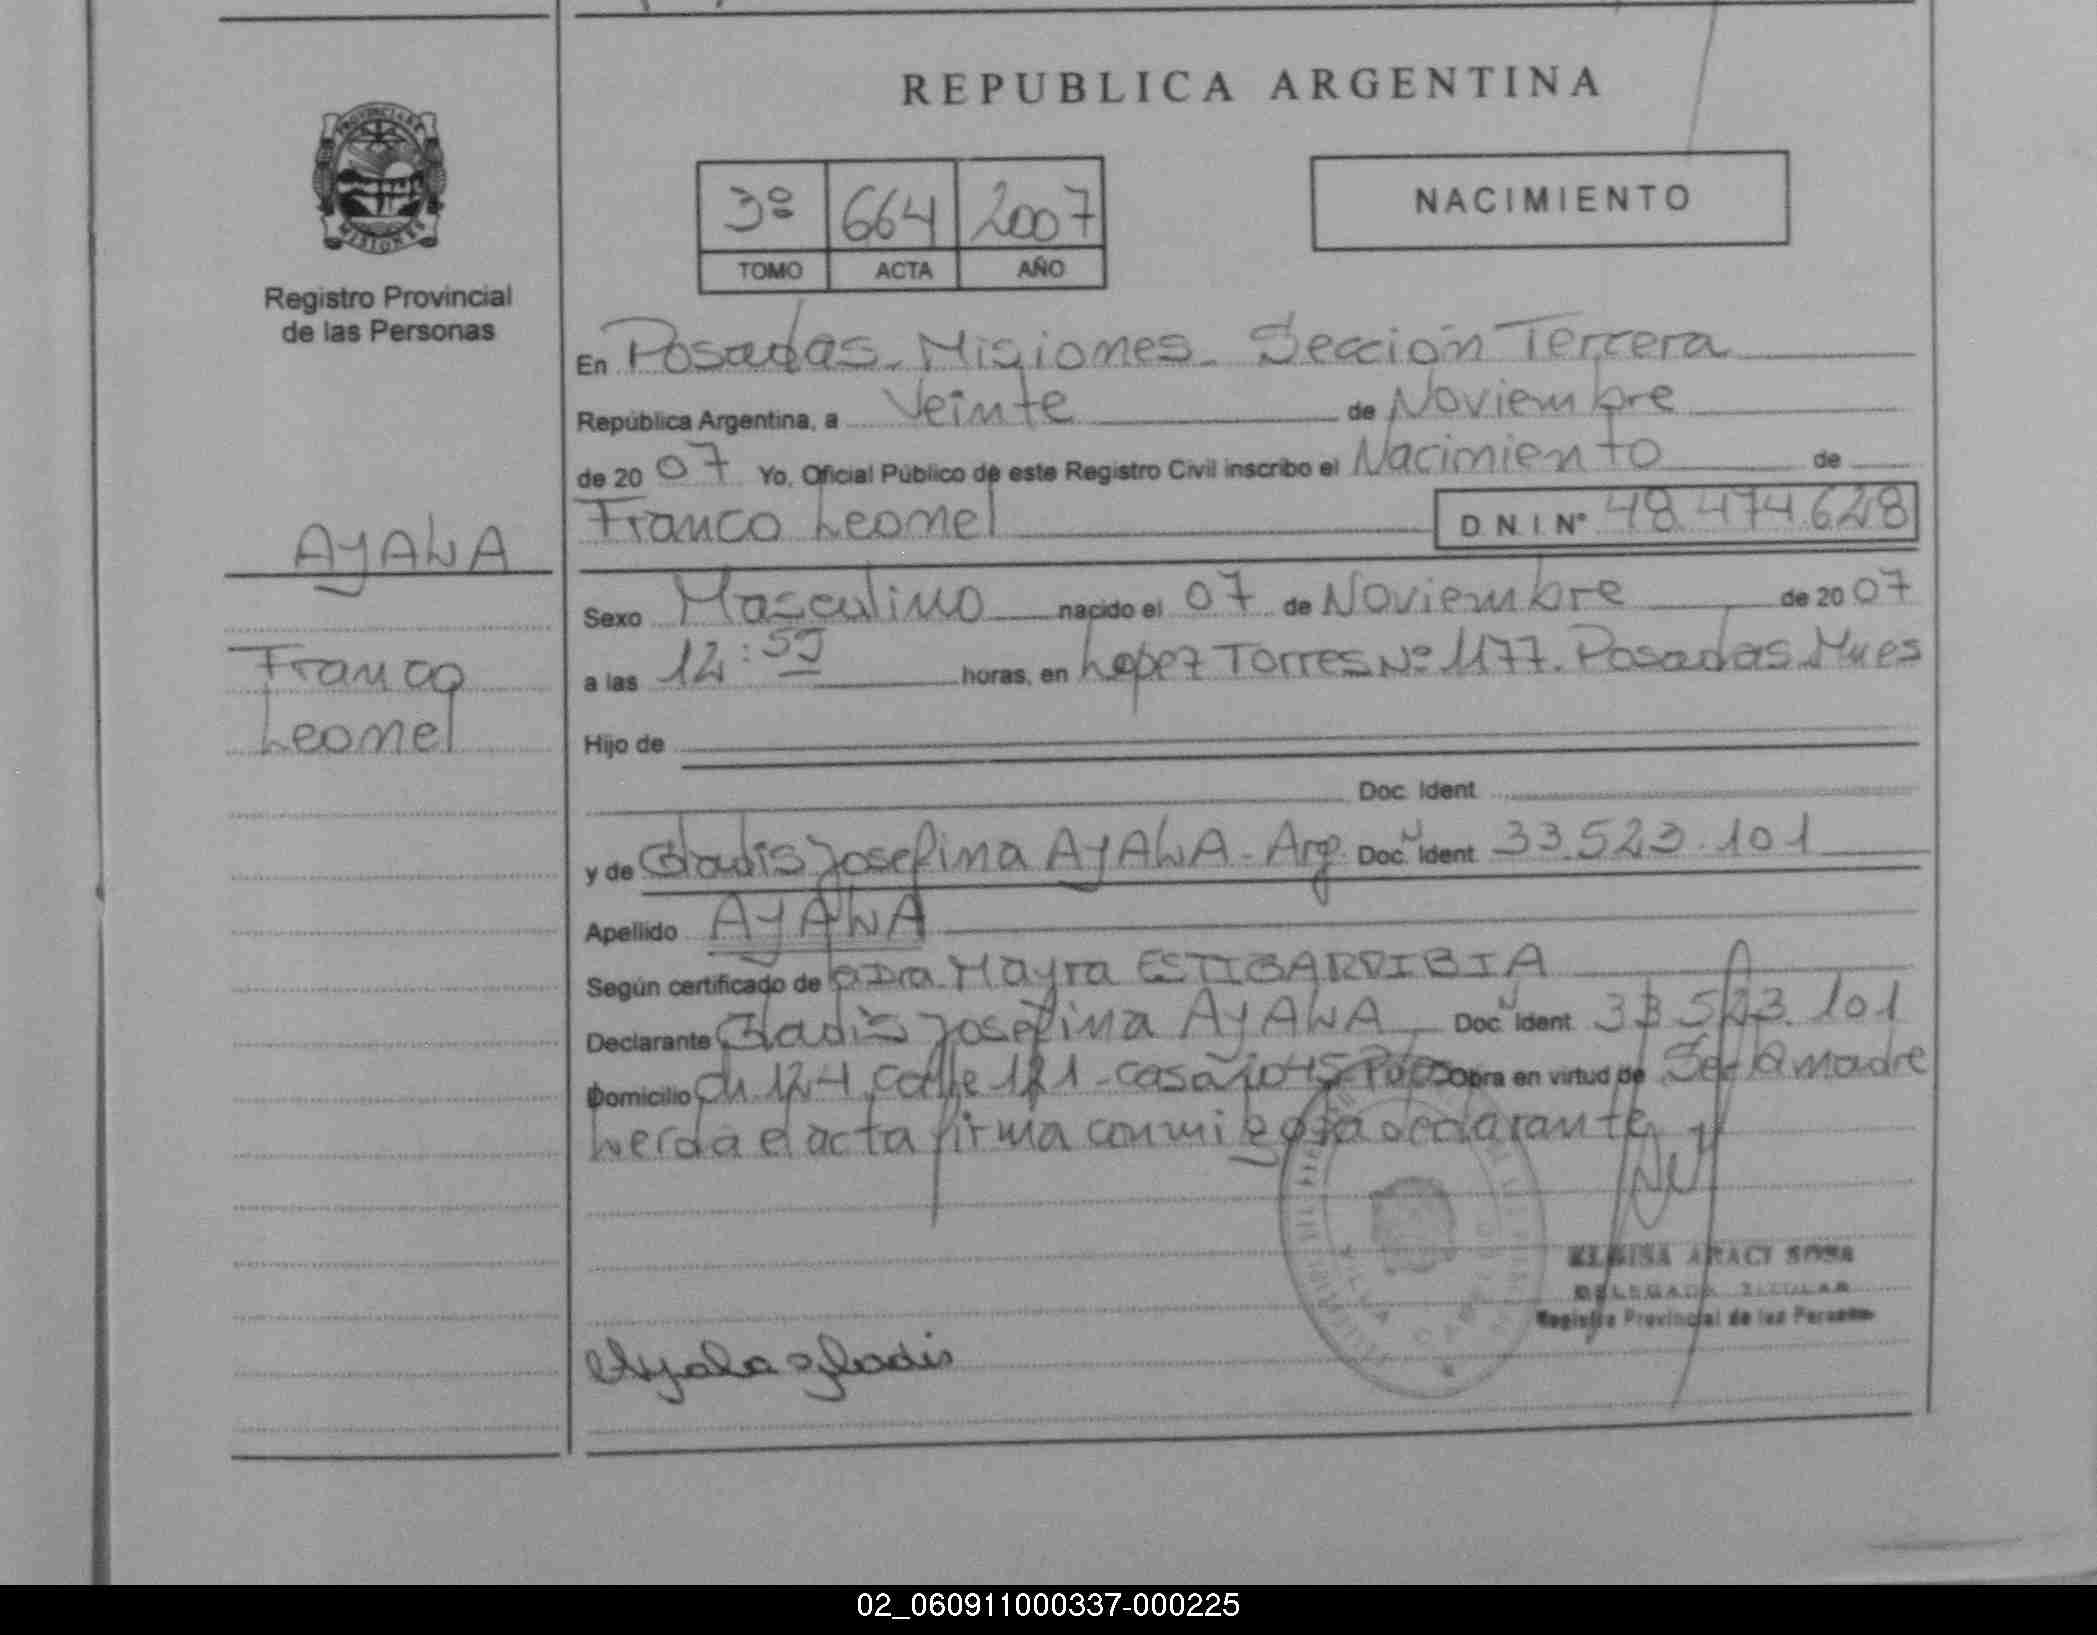 REPUBLICA ARGENTINA
PROVINCIA DE
MISIONES
Registro Provincial
de las Personas
3º 664 2007
TOMO ACTA AÑO
NACIMIENTO
En Posadas - Misiones - Sección Tercera
República Argentina, a Veinte de Noviembre
de 2007 Yo, Oficial Público de este Registro Civil inscribo el Nacimiento de
Franco Leonel D.N.I. Nº 48.474.628
AYALA
Franco
Leonel
Sexo Masculino nacido el 07 de Noviembre de 2007
a las 12:55 horas, en Lopez Torres Nº 1177. Posadas Mnes
Hijo de
Doc. Ident.
y de Gladis Josefina AYALA - Arg. Doc. N Ident. 33.523.101
Apellido AYALA
Según certificado de Dra Mayra ESTIGARRIBIA
Declarante Gladis Josefina AYALA Doc. N Ident. 33.523.101
Domicilio Ch. 124 calle 121 - casa Obra en virtud de Ser la madre
Leída el acta firma conmigo la declarante
ARACI SOSA
DELEGADA TITULAR
Registro Provincial de las Personas
Ayala Gladis
02_060911000337-000225